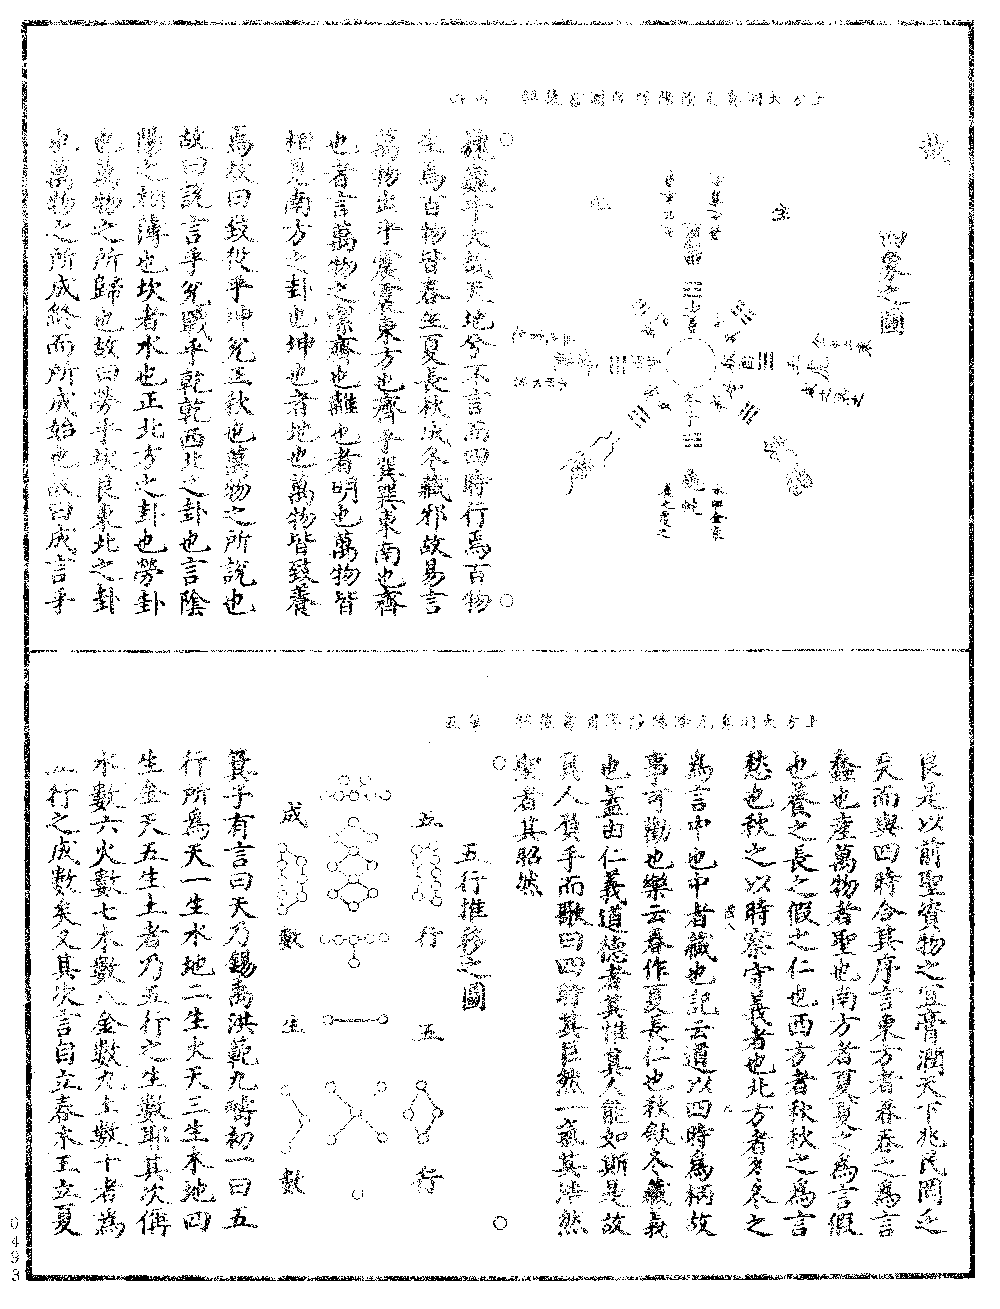 哉
四象之圖
巍巍乎大哉天地兮不言焉四時行焉百物
生焉百物皆春生夏長秋成冬藏邪故易言
萬物出乎震震東方也齊乎巽巽東南也齊
也者言萬物之潔齊也離也者明也萬物皆
相見南方之卦也坤也者地也萬物皆致養
焉故曰致役乎坤兌正秋也萬物之所說也
故曰說言乎兌戰乎乾乾西北之卦也言陰
陽之相薄也坎者水也正北方之卦也勞卦
也萬物之所歸也故曰勞乎坎艮東北之卦
也萬物之所成終而所成始也故曰成言乎
艮是以前聖賓物之宜膏潤天下兆民罔乏
天而與四時合其序言東方者春春之為言
蠢也產萬物者聖也南方者夏夏之為言假
也養之長之假之仁也西方者秋秋之為言
愁也秋之以時察守義者也北方者冬冬之
為言中也中者藏也記云道以四時為柄故
事可勸也樂云春作夏長仁也秋斂冬藏義
也蓋由仁義道德者其惟真人能如斯是故
真人額手而歌曰四時其臣然一氣其津然
聖者其昭然
五行推移之圖
五行
成數
五行
生數
箕子有言曰天乃錫禹洪範九疇初一曰五
行所為天一生水地二生火天三生木地四
生金天五生土者乃五行之生數耶其次偁
水數六火數七木數八金數九土數十者為
五行之成數矣又其次言自立春木王立夏
0493